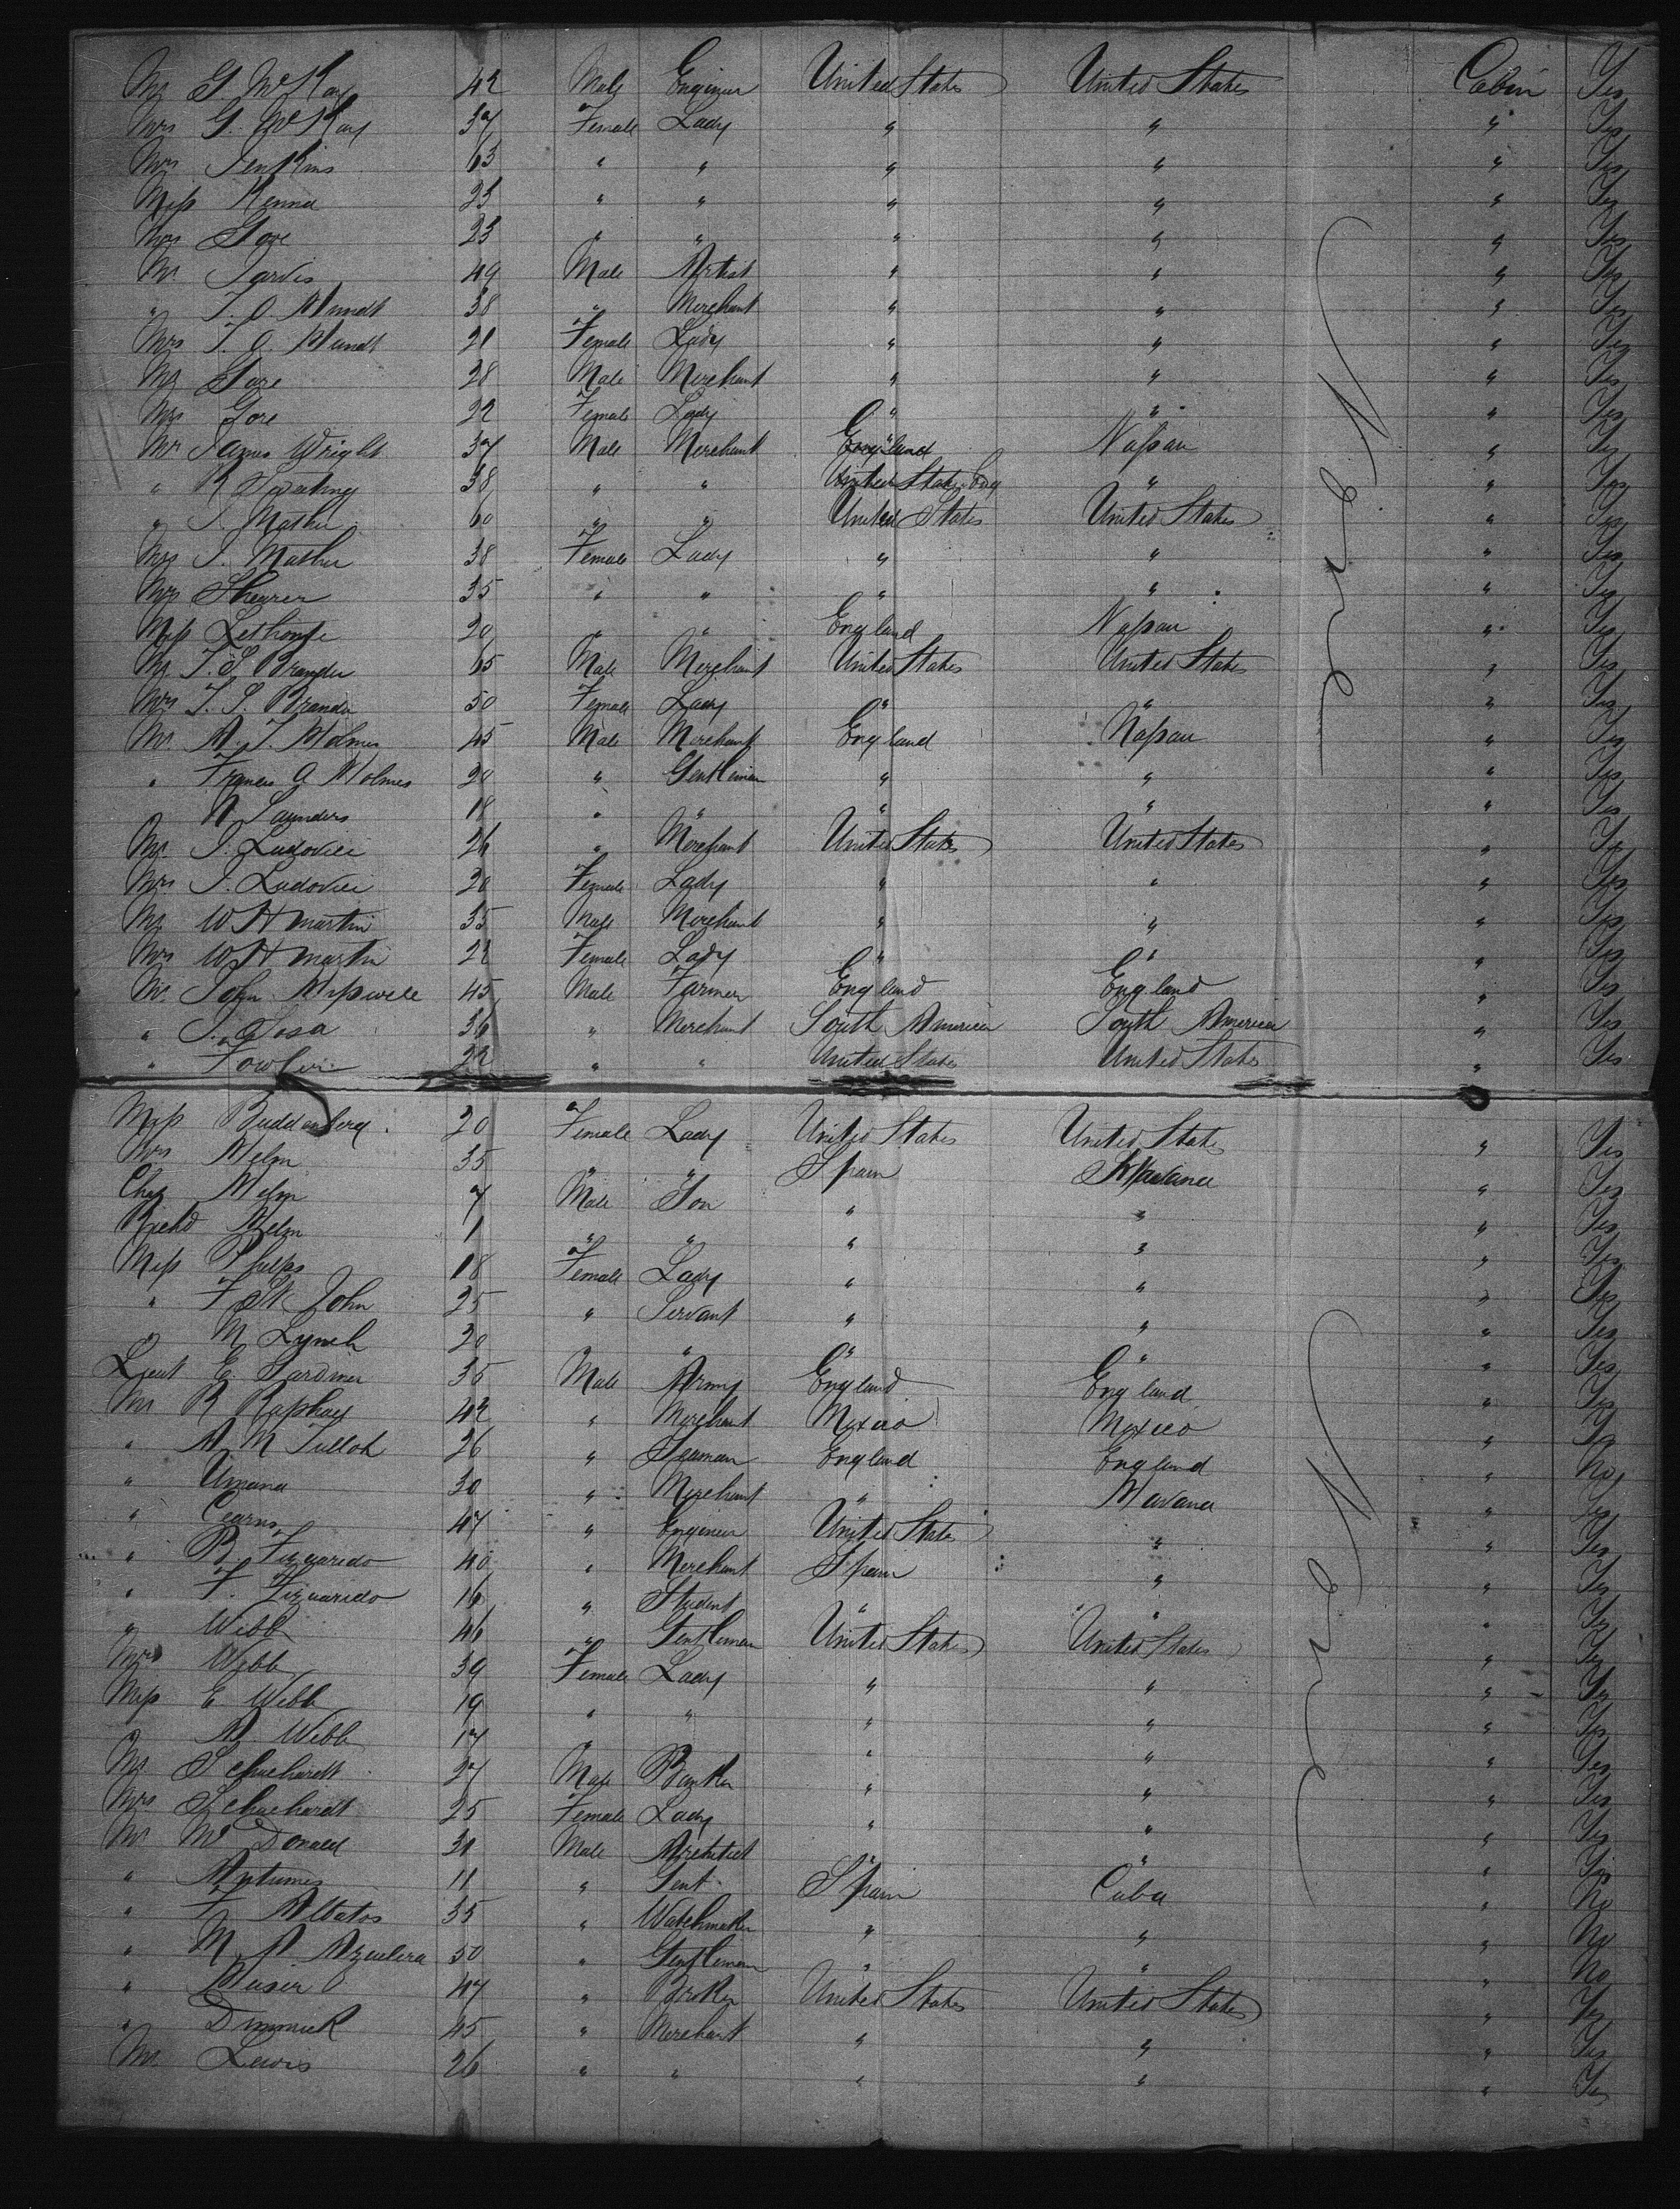 Mr G. McKay 42 Male Engineer United States United States Cabin Yes
Mrs G. McKay 37 Female Lady " " " Yes
Mrs Jenkins 63 " " " " " Yes
Miss Kenna 23 " " " " " Yes
Mrs Gore 23 " " " " " Yes
Mr Jarvis 49 Male Artist " " " Yes
" T. O. Mundt 38 " Merchant " " " Yes
Mrs T. O. Mundt 21 Female Lady " " " Yes
Mr Gore 28 Male Merchant " " " Yes
Mrs Gore 22 Female Lady " " " Yes
Mr James Wright 37 Male Merchant England Nassau " Yes
" R 38 " " United States Eng " " Yes
" J. Mather 60 " " United States United States " Yes
Mrs J. Mather 38 Female Lady " " " Yes
Mrs Shearer 35 " " " " " Yes
Miss 20 " " England Nassau " Yes
Mr T. S. Brander 65 Male Merchant United States United States " Yes
Mrs T. S. Brander 50 Female Lady " " " Yes
Mr A. J. Holmes 45 Male Merchant England Nassau " Yes
" Francis A Holmes 29 " Gentleman " " " Yes
" Saunders 18 " " " " " Yes
Mr J. Ludovici 26 " Merchant United States United States " Yes
Mrs J. Ludovici 20 Female Lady " " " Yes
Mr W H Martin 35 Male Merchant " " " Yes
Mrs W H Martin 22 Female Lady " " " Yes
Mr John 45 Male Farmer England England " Yes
" J. Sosa 36 " Merchant South America South America " Yes
" Fowler 22 " " United States United States " Yes
None
Miss Buddenberg 20 Female Lady United States United States " Yes
Mrs Helm 35 " " Spain Havana " Yes
Chas Helm 7 Male Son " " " Yes
Richd Helm 1 " " " " " Yes
Miss Phelps 18 Female Lady " " " Yes
" F St John 25 " Servant " " " Yes
" M Lynch 20 " " " " " Yes
Lieut E. Gardiner 35 Male Army England England " Yes
Mr R Raphael 42 " Merchant Mexico Mexico " Yes
" A M Tulloh 26 " Seaman England England " No
" Umana 30 " Merchant " Havana " Yes
" Cearns 47 " Engineer United States " " Yes
" B. Figuaredo 40 " Merchant Spain " " Yes
" F. Figuaredo 16 " Student " " " Yes
" Webb 46 " Gentleman United States United States " Yes
Mrs Webb 39 Female Lady " " " Yes
Miss E Webb 19 " " " " " Yes
" A. Webb 17 " " " " " Yes
Mr Schuchardt 27 Male Banker " " " Yes
Mrs Schuchardt 25 Female Lady " " " Yes
Mr McDonald 31 Male Architect " " " Yes
" Antunes 11 " Gent Spain Cuba " No
" F. 35 " Watchmaker " " " No
" M. A. Aguilera 50 " Gentleman " " " No
" 47 " Broker United States United States " Yes
" Dimmick 45 " Merchant " " " Yes
Mr Lewis 26 " " " " " Yes
None